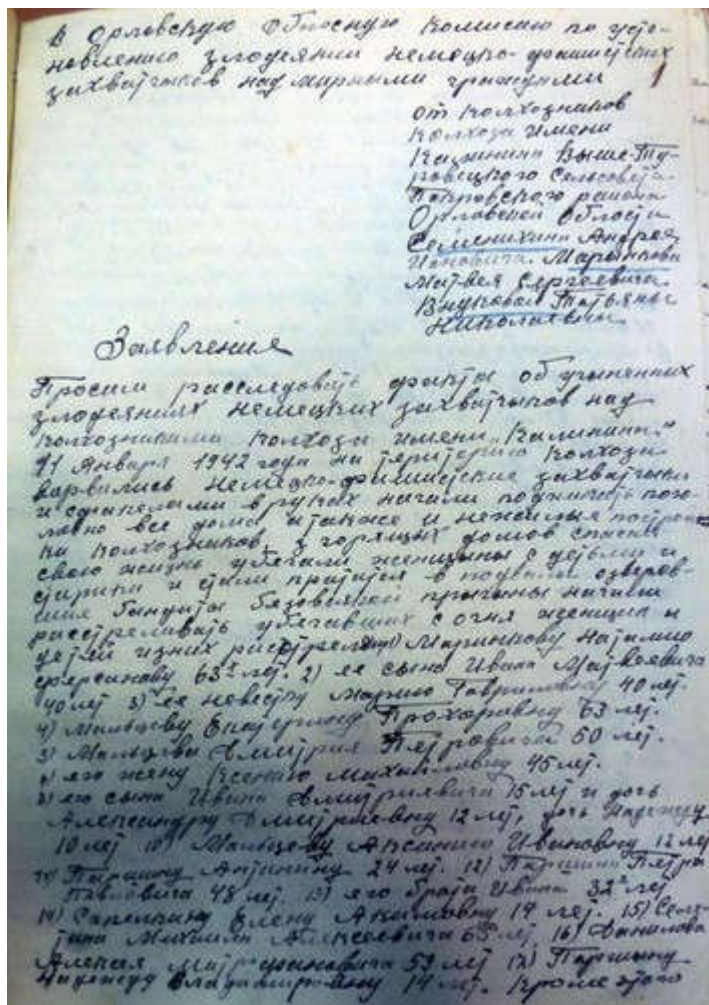 В Орловскую обласную комисаю по усто-
новлению злодеянии немецко-фашистских
захватчиков над мирными гражданми
1
от колхозников
колхоза имени
Калинина Выше-Ту-
ровецкого сельсовета
Покровского района
Орловской области
Семенихина Андрея
Ивановича Маринкова
Матвея Сергеевича
Внуковай Татьяны
Николаевны
Заявления
Просим расследовать факты об учыненных
злодеяниях немецких захватчыков над
колхозниками колхоза имени "Калинина"
11 Января 1942 года на територию колхоза
варвались немецко-фашистские захватчики
и с факелами в руках начали поджигать пого-
ловно все дома атакже и нежилыя построй
ки колхозников, з горящих домов спасая
свою жизнь убегали женщины с детьми и
старики и стали прятатся в подвалы озверев-
шия бандиты бязовсякой прычины начали
расстреливать убегавших с огня женщин и
детей изних расстреляны 1) Маринкову Наталию
63х лет. 2) ее сына Ивана Матвеевича
40 лет 3) ее невестку Марию Гавриловну 40 лет.
4) Мальцеву Екатерину Прохоравну 63 лет.
5) Мальцева Дмитрия Петровича 50 лет.
его жену Ксению Михайловну 45 лет.
8) его сына Ивана Дмитриевича 15 лет и дочь
Александру Дмитриевну 12 лет, дочь Надежду
10 лет 10) Мальцеву Аксанию Ивановну 12 лет
11) Паршину Антанину 24 лет. 12) Паршина Петра
Павловича 48 лет. 13) его брата Ивана 32х лет
14) Сапелкину Елену Акимовну 14 лет. 15) Селе-
Михаила Алексеевича 65 лет 16) Данилова
Алексея Митрафановича 59 лет 17) Паршину
Надежду Владимировну 14 лет. Кроме этого